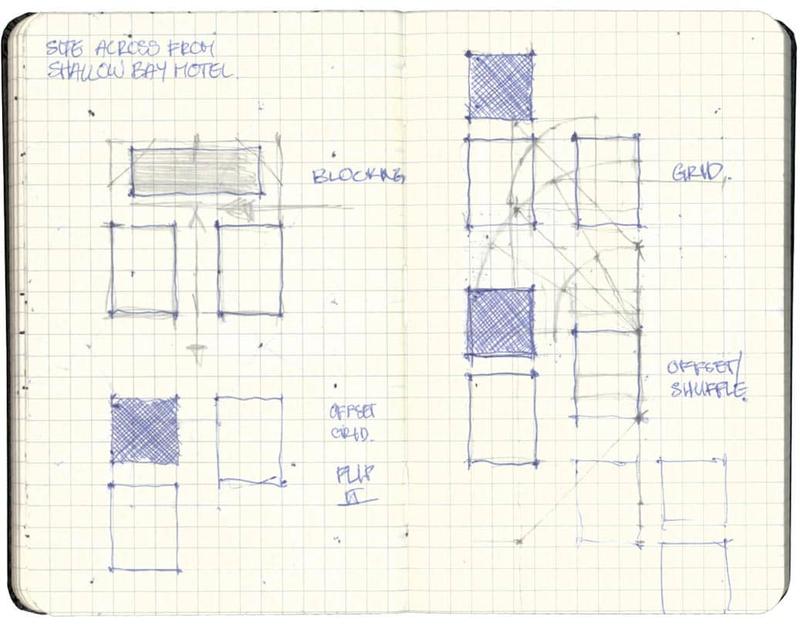 SITE ACROSS FROM
SHALLOW BAY MOTEL.
BLOCKING
OFFSET
GRID.
FLIP
IT
GRID.
OFFSET/
SHUFFLE